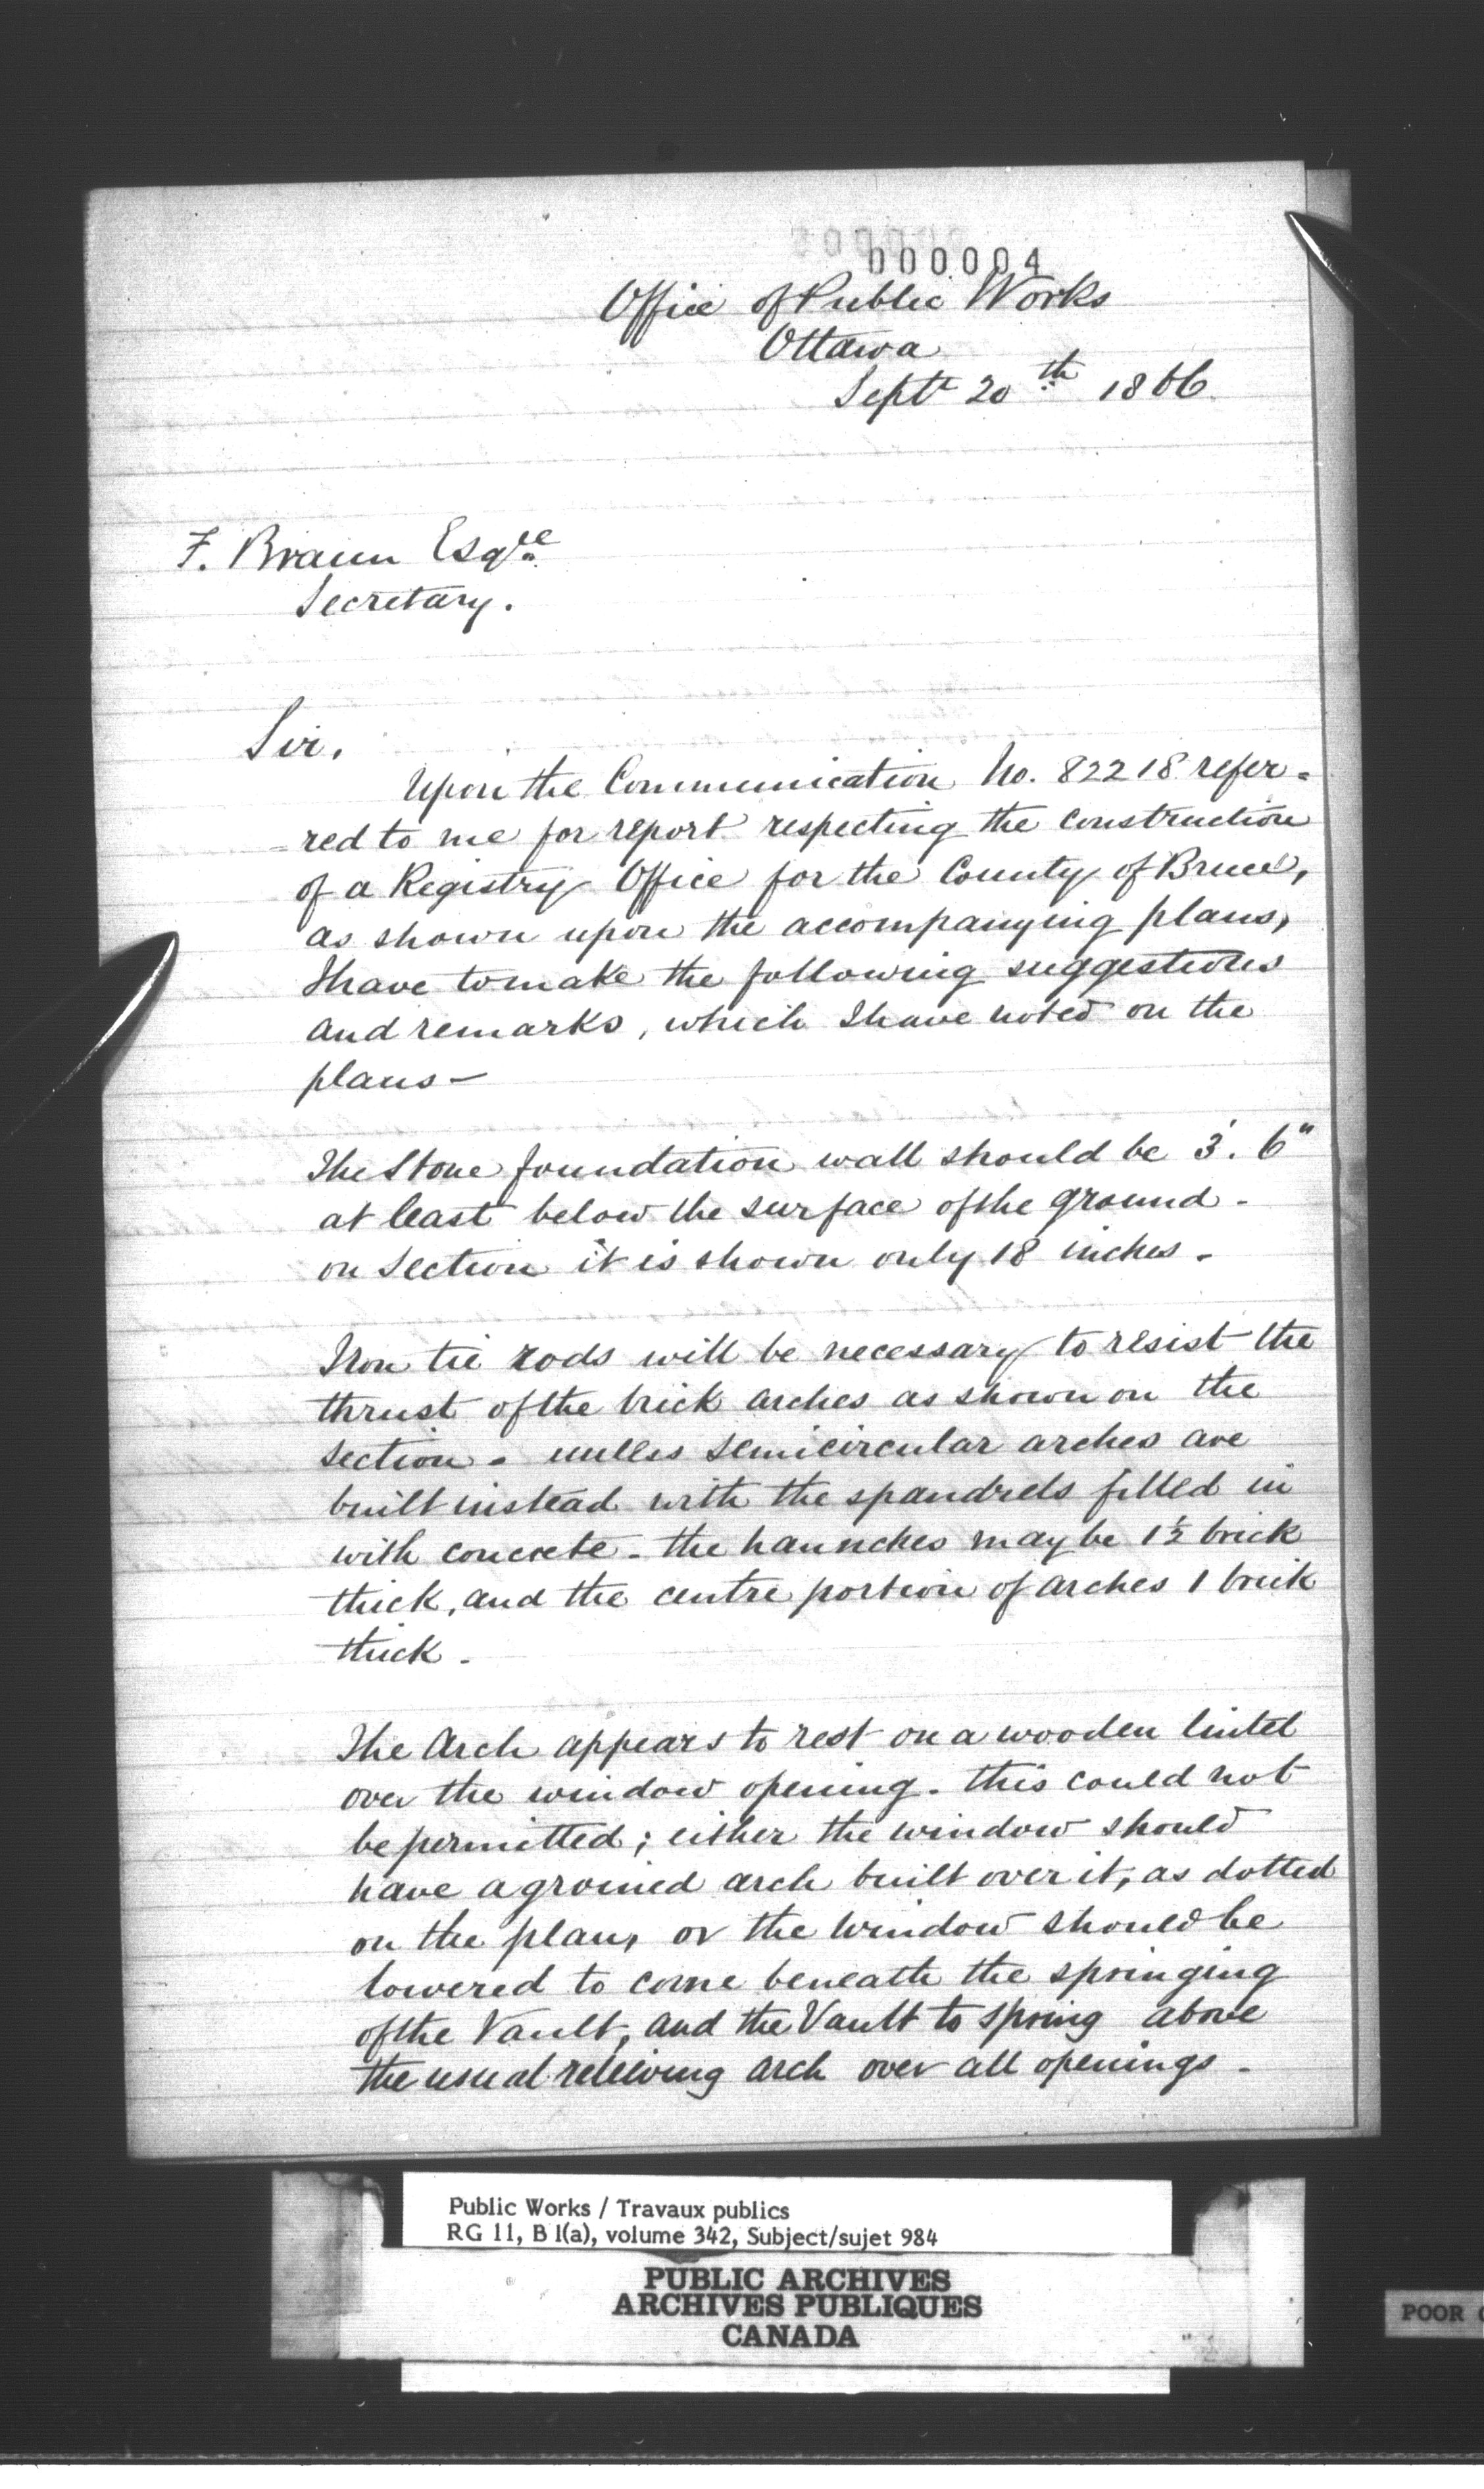 000004
Office of Public Works
Ottawa
Sept 20th 1866.
F. Braun Esqre
Secretary.
Sir,
Upon the Communication No. 82218 refer=
=red to me for report respecting the construction
of a Registry Office for the County of Bruce,
as shown upon the accompanying plans,
I have to make the following suggestions
and remarks, which I have noted on the
plans —
The Stone foundation wall should be 3'. 6"
at least below the surface of the ground -
on Section it is shown only 18 inches -
Iron tie rods will be necessary to resist the
thrust of the brick arches as shown on the
section - unless semicircular arches are
built instead with the spandrels filled in
with concrete - the haunches may be 1½ brick
thick, and the centre portion of arches 1 brick
thick -
The Arch appears to rest on a wooden lintel
over the window opening - this could not
be permitted; either the window should
have a groined arch built over it, as dotted
on the plan, or the window should be
lowered to come beneath the springing
of the Vault, and the Vault to spring above
the usual relieving arch over all openings -
Public Works / Travaux publics
RG 11, B 1(a), volume 342, Subject/sujet 984
PUBLIC ARCHIVES
ARCHIVES PUBLIQUES
CANADA
POOR